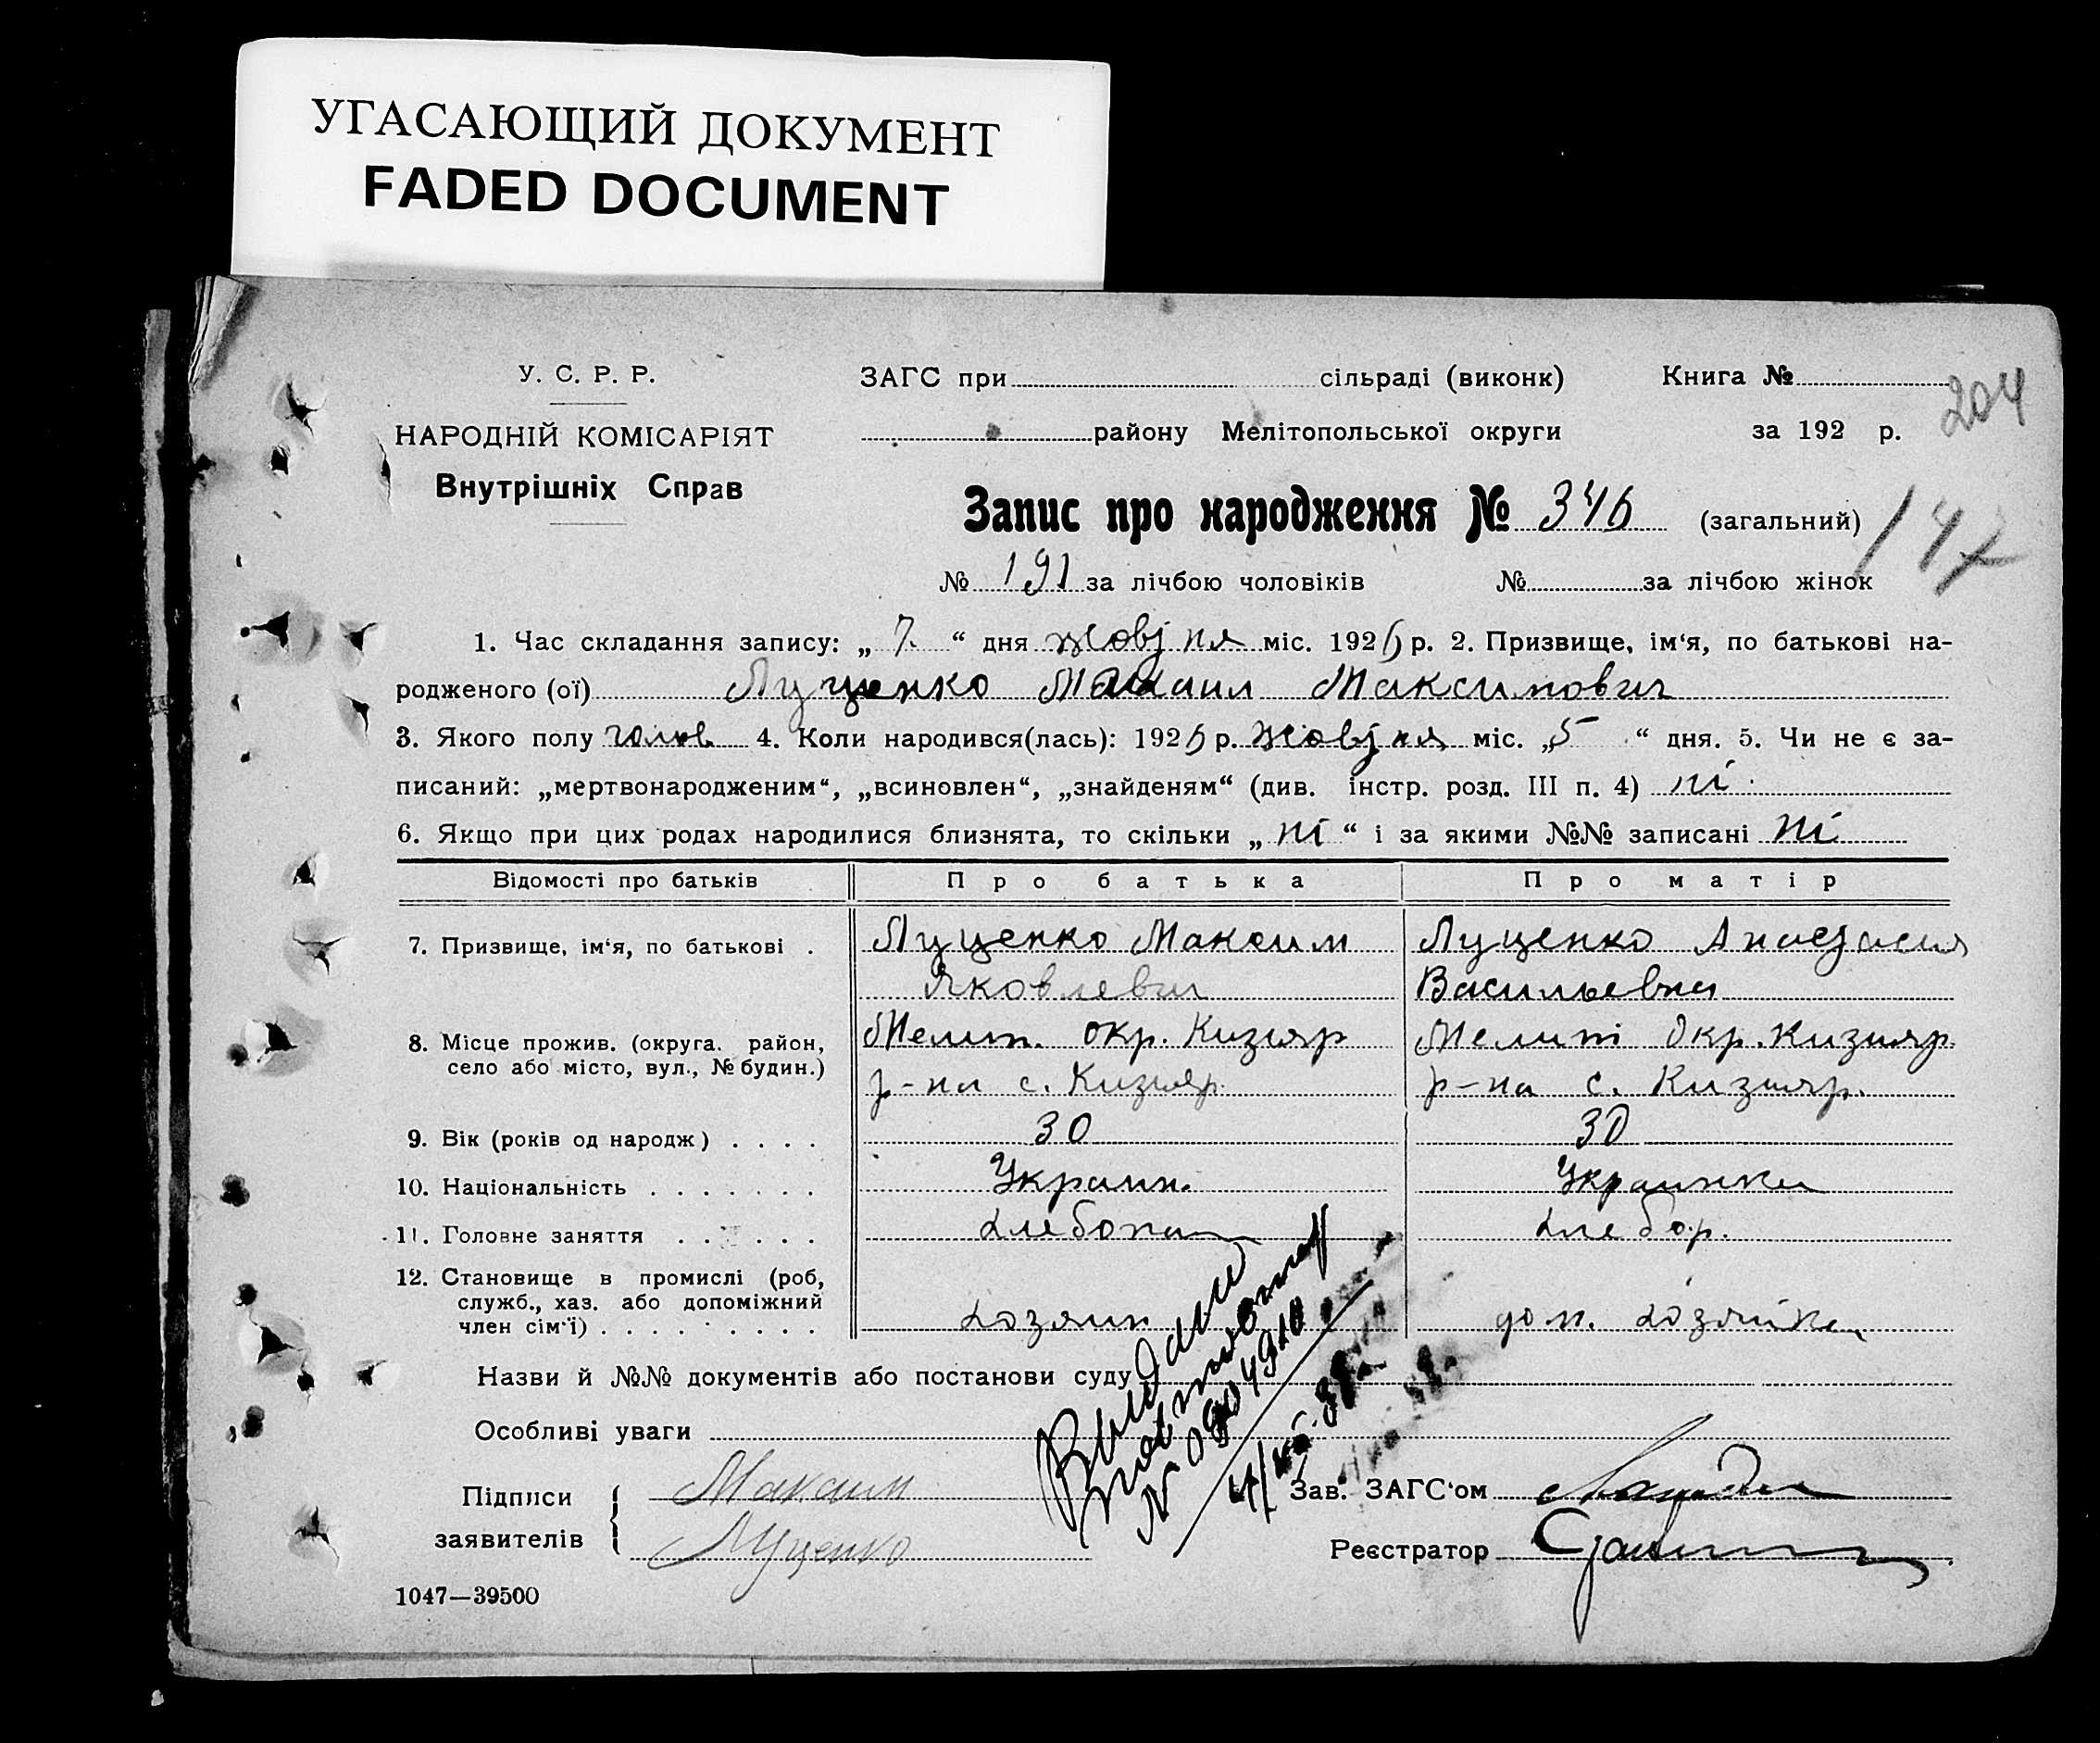 УГАСАЮЩИЙ ДОКУМЕНТ
FADED DOCUMENT
У. С. Р. Р.
НАРОДНІЙ КОМІСАРІЯТ
Внутрішніх Справ
ЗАГС при сільраді (виконк) Книга №
204
району Мелітопольської округи за 192 р.
Запис про народження № 346 (загальний)
147
№ 191 за лічбою чоловіків № за лічбою жінок
1. Час складання запису: „ 7 “ дня жовтня міс. 192 р. 2. Призвище, ім‘я, по батькові на-
родженого (ої) Луценко Михаил Максимович
3. Якого полу чолов. 4. Коли народився(лась): 192 р. жовтня міс. „5 “ дня. 5. Чи не є за-
писаний: „мертвонародженим“, „всиновлен“, „знайденям“ (див. інстр. розд. III п. 4) ні
6. Якщо при цих родах народилися близнята, то скільки „ ні “ і за якими №№ записані ні
Відомості про батьків Про батька Про матір
7. Призвище, ім‘я, по батькові . Луценко Максим Луценко Анастасия
Яковлевич Васильевна
8. Місце прожив. (округа. район, Мелит. окр. Кизияр Мелит окр. Кизияр.
село або місто, вул., № будин.) р-на с. Кизияр. р-на с. Кизияр.
9. Вік (років од народж) . . . . 30 30
10. Національність . . . . . . . Украин. Украинка
11. Головне заняття . . . . . . хлебопаш хлебор.
12. Становище в промислі (роб,
служб., хаз. або допоміжний
член сім‘ї) . . . . . . . . . хозяин дом. хозяйка
Назви й №№ документів або постанови суду
Особливі уваги
Выдано
повторно
№
Підписи Максим Зав. ЗАГС‘ом
заявителів Луценко Реєстратор
1047—39500